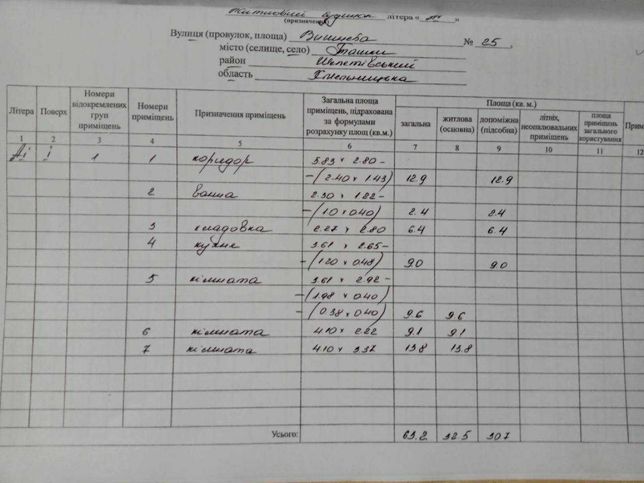 житловий будинок літера « А1 »
(призначення)
Вулиця (провулок, площа) Вишнева № 25
місто (селище, село) Ташки
район Шепетівський
область Хмельницька
Літера Поверх Номери відокремлених груп приміщень Номери приміщень Призначення приміщень Загальна площа приміщень, підрахована за формулами розрахунку площ (кв.м.) Площа (кв. м.)
загальна житлова (основна) допоміжна (підсобна) літніх, неопалювальних приміщень площа приміщень загального користування Прим
1 2 3 4 5 6 7 8 9 10 11 12
А1 1 1 1 коридор 5.83 × 2.80 -
-(2.40 × 1.43) 12.9 12.9
2 ванна 2.30 × 1.22 -
-(1.0 × 0.40) 2.4 2.4
3 кладовка 2.27 × 2.80 6.4 6.4
4 кухня 3.61 × 2.65 -
-(1.20 × 0.48) 9.0 9.0
5 кімната 3.61 × 2.92 -
-(1.98 × 0.40)
-(0.38 × 0.40) 9.6 9.6
6 кімната 4.10 × 2.22 9.1 9.1
7 кімната 4.10 × 3.37 13.8 13.8
Усього: 63.2 32.5 30.7